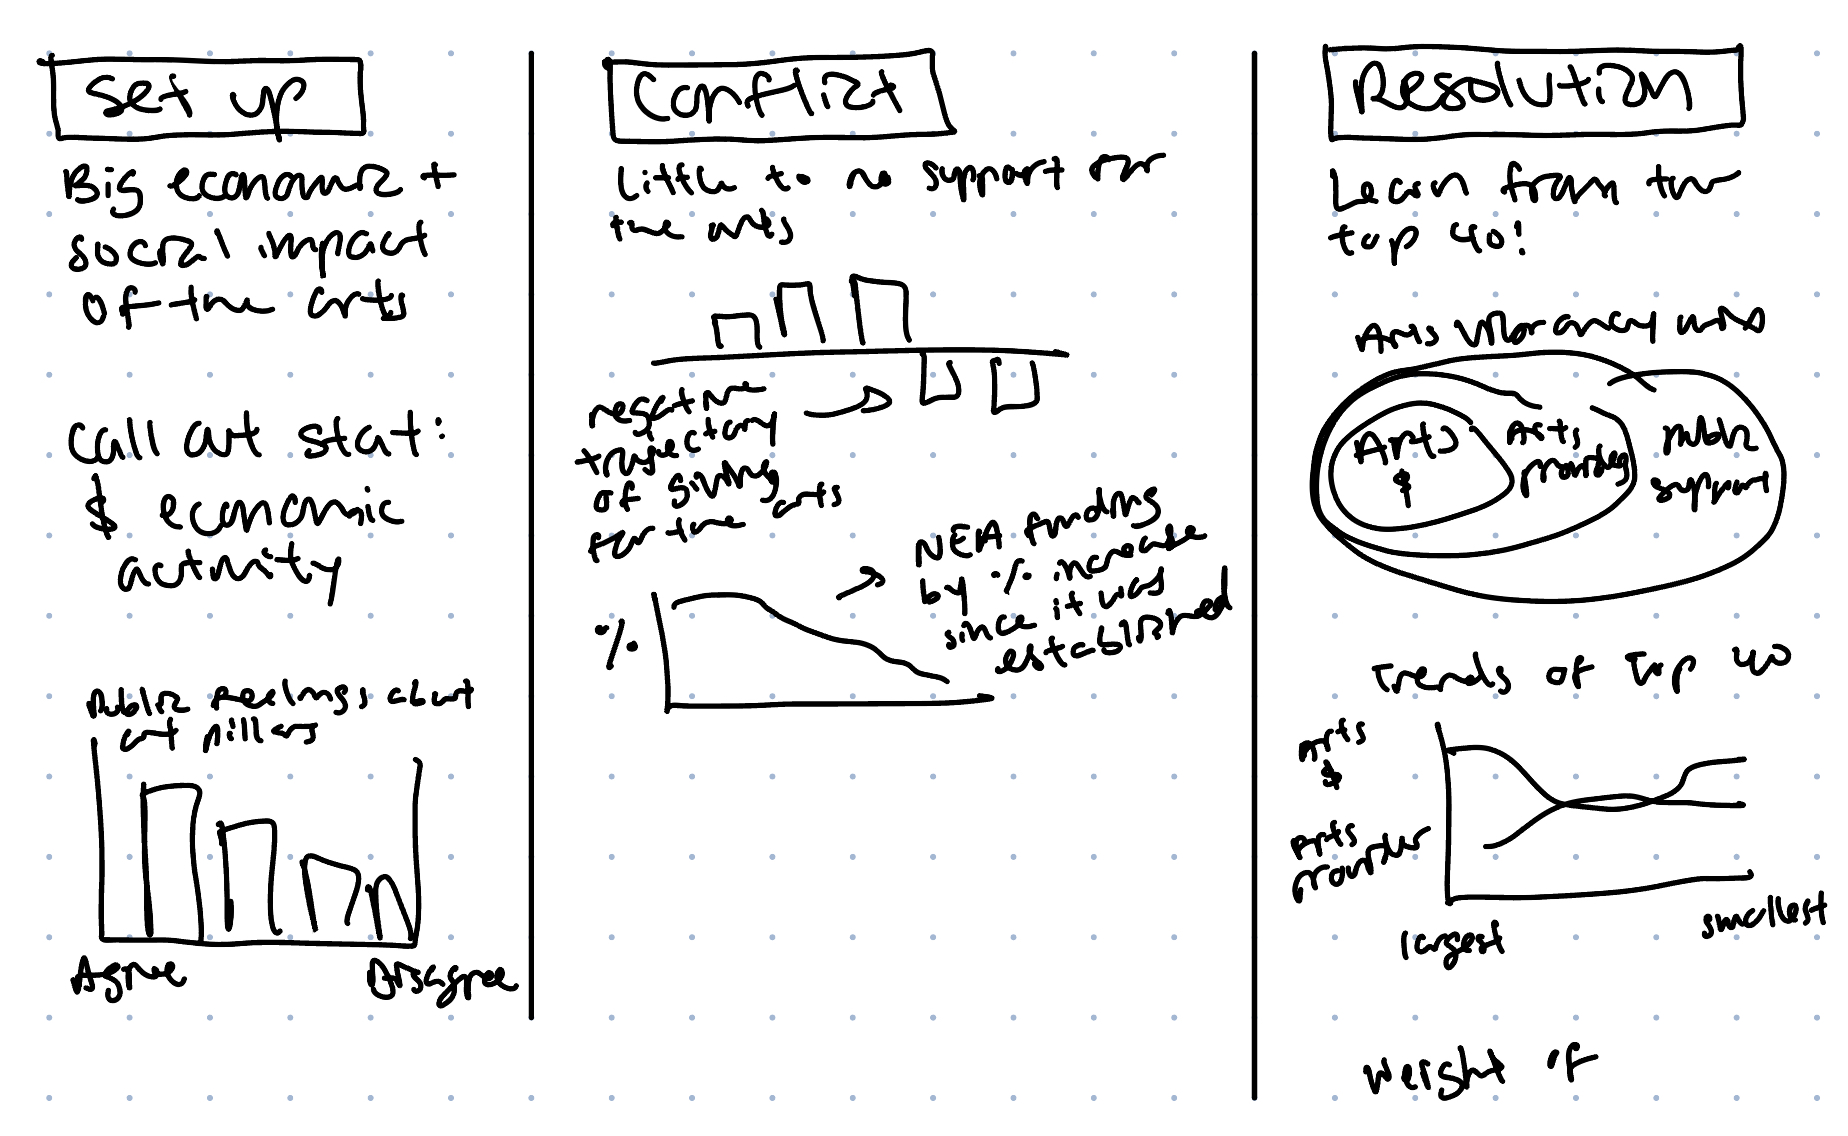 Set up
Big economic +
social impact
of the arts
Call out stat:
$ economic
activity
Public feelings about
art pillars
Agree
Disagree
Conflict
Little to no support for
the arts
negative
trajectory
of giving
for the arts
%
NEA funding
by % increase
since it was
established
Resolution
Learn from the
top 40!
Arts vibrancy
Arts
$
Arts
providers
public
support
Trends of Top 40
Arts
$
Arts
provider
largest
smallest
Weight of